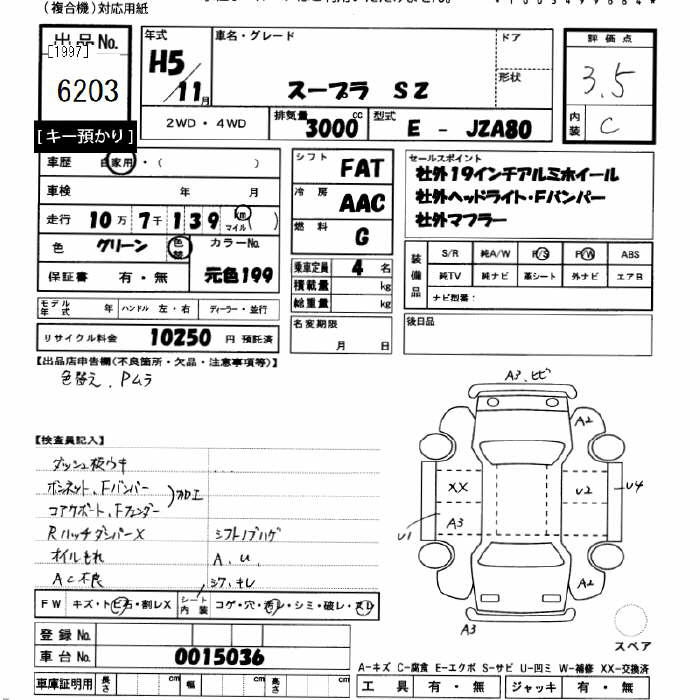 (複合機)対応用紙
出品No.
[1997]
6203
[キー預かり]
年式
H5/11月
車名・グレード
スープラ SZ
ドア
形状
評価点
3.5
内装
C
2WD・4WD
排気量
3000cc
型式
E - JZA80
車歴 自家用・( )
車検 年 月
走行 10万 7千 139 km マイル ( )
色 グリーン 色替
カラーNo.
元色199
保証書 有・無
モデル年式 年 ハンドル 左・右 ディーラー・並行
リサイクル料金 10250 円 預託済
シフト FAT
冷房 AAC
燃料 G
乗車定員 4 名
積載量 kg
総重量 kg
名変期限
月 日
セールスポイント
社外19インチアルミホイール
社外ヘッドライト・Fバンパー
社外マフラー
装備品
S/R 純A/W P/S P/W ABS
純TV 純ナビ 革シート 外ナビ エアB
ナビ型番:
後日品
【出品店申告欄(不良箇所・欠品・注意事項等)】
色替え、Pムラ
【検査員記入】
ダッシュ板ウキ
ボンネット、Fバンパー
コアサポート、Fフェンダー
)加工
RハッチダンパーX
オイルもれ
AC不良
シフトノブハゲ
A、U、
シワ、キレ
FW キズ・トビ石・割レX
シート内装 コゲ・穴・汚レ・シミ・破レ・スレ
登録No.
車台No. 0015036
車庫証明用 長さ cm 幅 cm 高さ cm
A3、ヒビ
A2
XX
U2
U4
U1
A3
A2
A3
スペア
A-キズ C-腐食 E-エクボ S-サビ U-凹ミ W-補修 XX-交換済
工具 有・無 ジャッキ 有・無